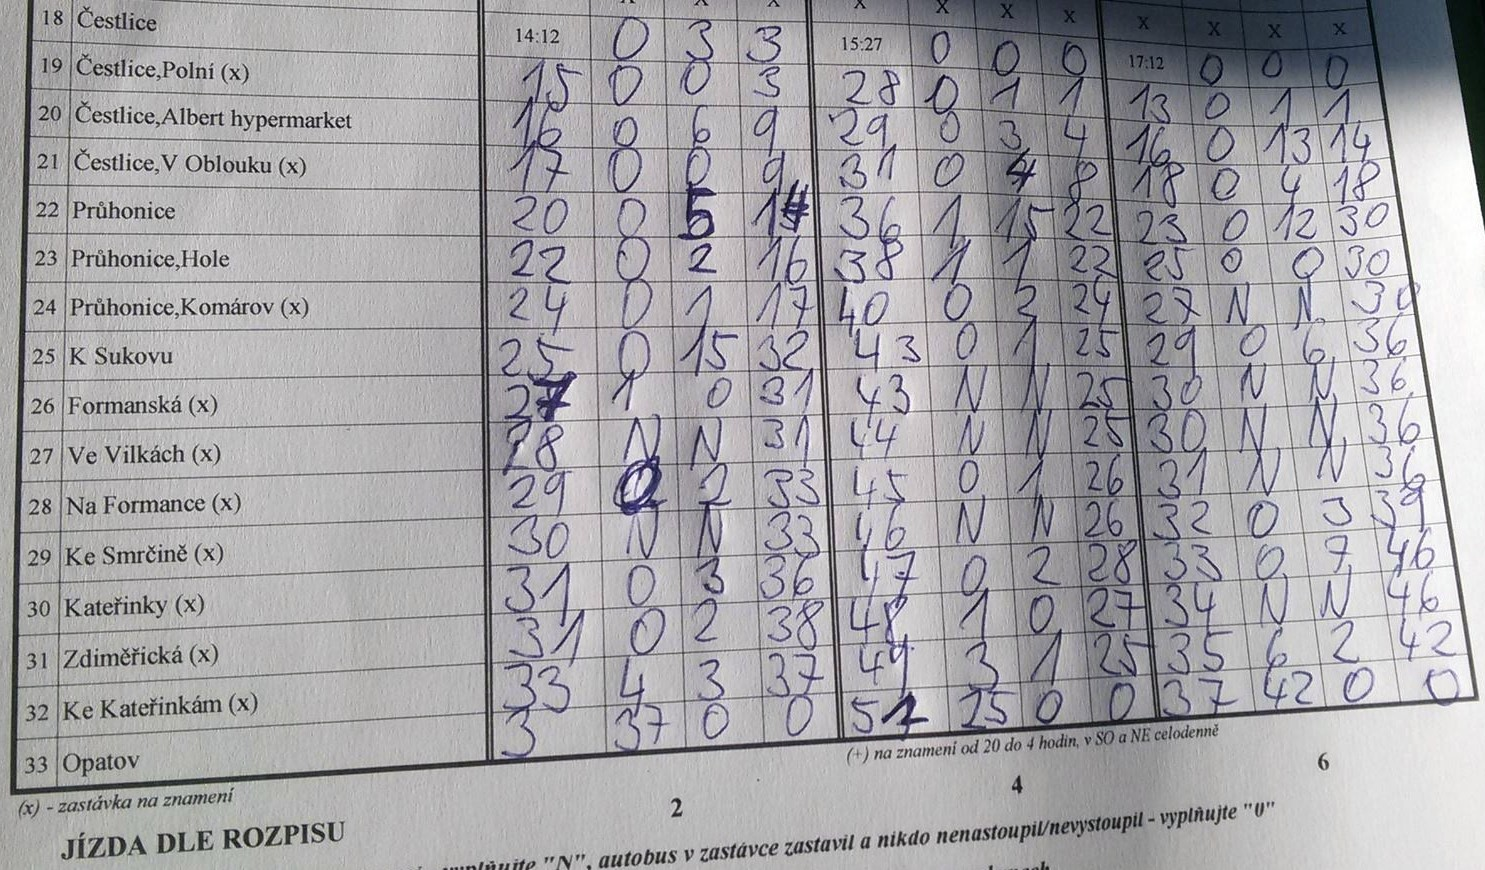 x x x x x x x x x x x
18 Čestlice 14:12 0 3 3 15:27 0 0 0 17:12 0 0 0
19 Čestlice,Polní (x) 15 0 0 3 28 0 1 1 13 0 1 1
20 Čestlice,Albert hypermarket 16 0 6 9 29 0 3 4 16 0 13 14
21 Čestlice,V Oblouku (x) 17 0 0 9 31 0 4 8 18 0 4 18
22 Průhonice 20 0 5 14 36 1 15 22 23 0 12 30
23 Průhonice,Hole 22 0 2 16 38 1 1 22 25 0 0 30
24 Průhonice,Komárov (x) 24 0 1 17 40 0 2 24 27 N N 30
25 K Sukovu 25 0 15 32 43 0 1 25 29 0 6 36
26 Formanská (x) 27 1 0 31 43 N N 25 30 N N 36
27 Ve Vilkách (x) 28 N N 31 44 N N 25 30 N N 36
28 Na Formance (x) 29 0 2 33 45 0 1 26 31 N N 36
29 Ke Smrčině (x) 30 N N 33 46 N N 26 32 0 3 39
30 Kateřinky (x) 31 0 3 36 47 0 2 28 33 0 7 46
31 Zdiměřická (x) 31 0 2 38 48 1 0 27 34 N N 46
32 Ke Kateřinkám (x) 33 4 3 37 49 3 1 25 35 6 2 42
33 Opatov 3 37 0 0 51 25 0 0 37 42 0 0
(x) - zastávka na znamení (+) na znamení od 20 do 4 hodin, v SO a NE celodenně
2 4 6
JÍZDA DLE ROZPISU
vyplňujte "N", autobus v zastávce zastavil a nikdo nenastoupil/nevystoupil - vyplňujte "0"